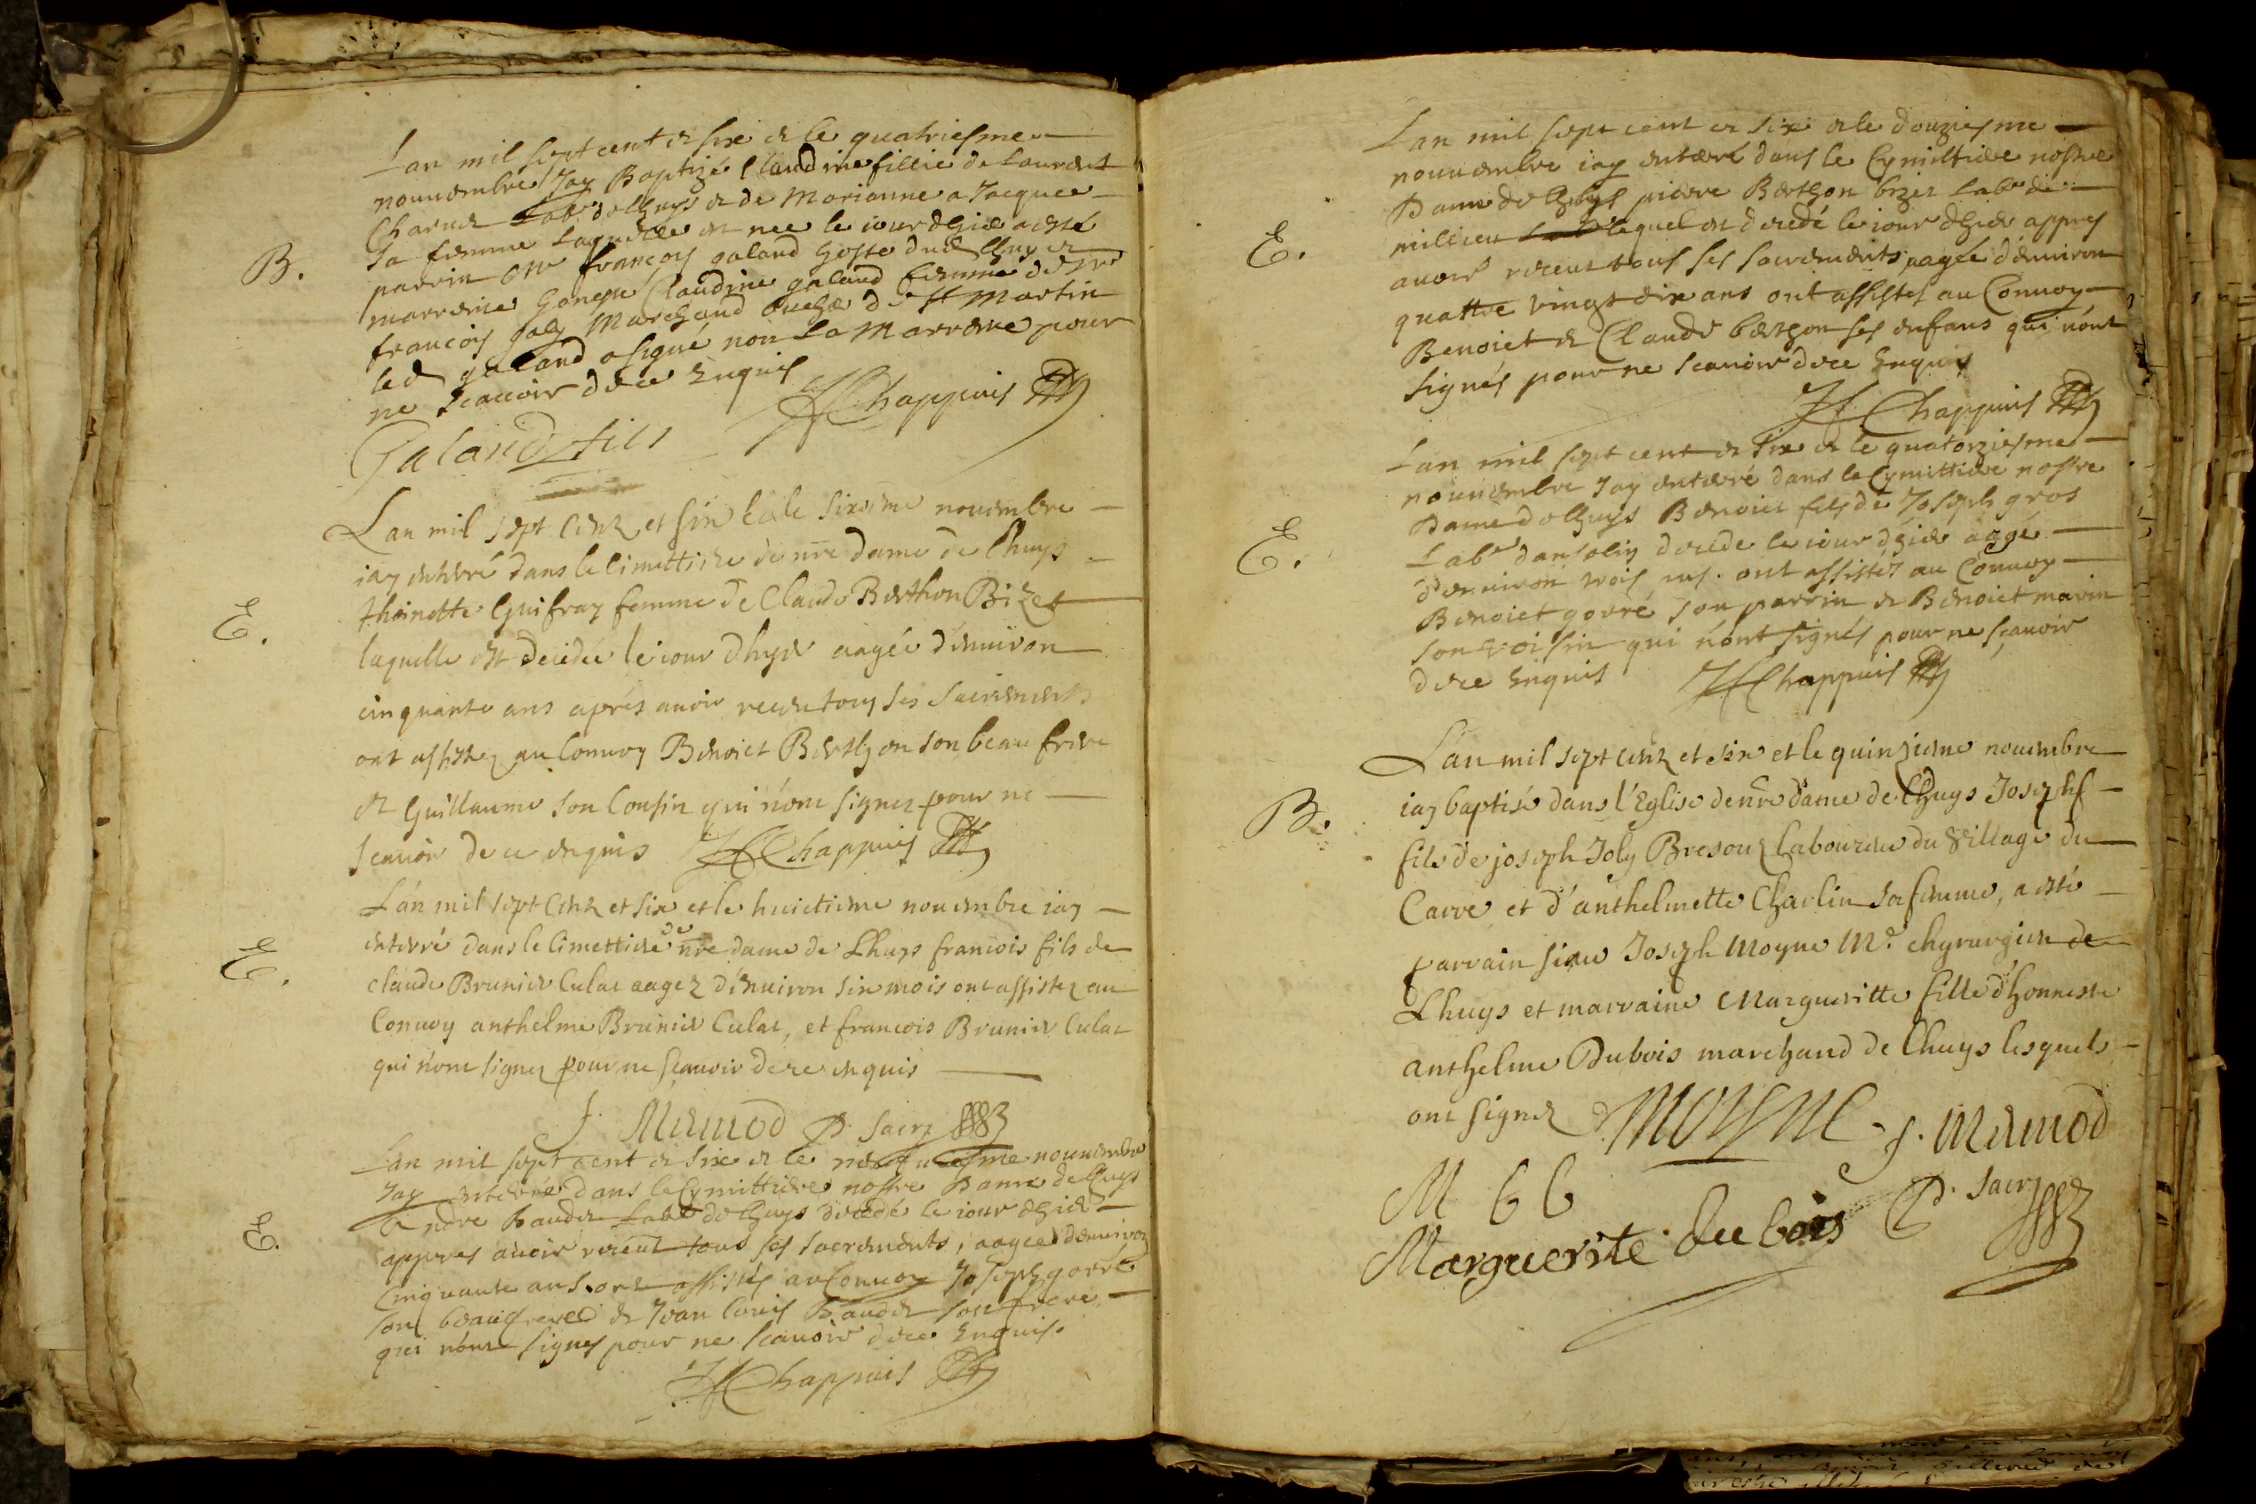 Lan mil sept cent & six & le quatriesme
nouuembre Jay Baptizé Claudine fillie de Laurent
Charuet Labr de lhuys & de Marianne a Jacquee
sa femme laquelle est nee le iour dhier a esté
parrin françois galand hoste dud lhuys et
marrenne honeste Claudine galand femme de
françois joly Marchand de st Martin
led galand a signé non la Marrenne pour
ne scauoir de ce Enquis
B.
Chappuis
Galand fils
Lan mil sept cent et six & le sixieme nouembre
iay enterré dans le Cimettiere de nre dame de lhuys
E.
thoinette Guifray femme de Claude Berthon Bizet
laquelle est decedee le iour dhyer aagée d'enuiron
cinquante ans aprés auoir receu tous ses sacrements
ont assistez au Conuoy Benoict Berthon son beau frere
et Guillaume son Cousin qui n'ont signez pour ne
scauoir de ce enquis Chappuis
L'an mil sept cent et six et le huictieme nouembre iay
E.
enterré dans le Cimettiere de nre dame de Lhuys francois fils de
claude Brunier Culat aagez d'enuiron six mois ont assistez au
Conuoy anthelme Brunier Culat, et francois Brunier Culat
qui n'ont signez pour ne scauoir de ce enquis
J. Mamod P. Sacr
Lan mil sept cent & six & le nouuembre
Jay enterré dans le Cymittiere nostre Dame de lhuys
E.
Andre Baudet Labr de lhuys decedé le iour dhier
appres auoir receut tous ses sacrements, aagee denuiron
Cinquante ans ont assistés au Conuoy Joseph gorré
son beaufrere & Jean Louis Baudet son frere
qui n'ont signes pour ne scauoir de ce Enquis.
Chappuis
Lan mil sept cent et six & le douziesme
nouuembre iay enterré dans le Cymittiere nostre
Dame de lhuys pierre Berthon bizet Labr de
E.
millieu lequel est decedé le iour dhier appres
auoir receut tous ses sacrements, aagée d'enuiron
quattre vingt dix ans ont assistes au Conuoy
Benoict & Claude berthon ses enfans qui n'ont
signés pour ne scauoir de ce Enquis
Chappuis
Lan mil sept cent & six & le quatorziesme
nouuembre Jay enterré dans le Cymittiere nostre
Dame de lhuys Benoict fils de Joseph gros
E.
Labr dansolin decede le iour dhier aagé
d'enuiron trois ans. ont assistés au Conuoy
Benoict gorré son parrin & Benoict marin
son voisin qui n'ont signés pour ne scauoir
de ce Enquis Chappuis
L'an mil sept cent et six et le quinzieme nouembre
B.
iay baptisé dans l'Eglise de nre dame de Lhuys Joseph
fils de joseph Joly Bresouz laboureur du village du
Carre et d'anthelmette Charlin sa femme, a esté
parrain sieur Joseph Moyne Mr chyrurgien de
Lhuys et marraine Margueritte fille d'honneste
anthelme Dubois marchand de Lhuys lesquels
ont signez
MOYNE J. Mamod
P. Sacr
M b b
Marguerite du bois